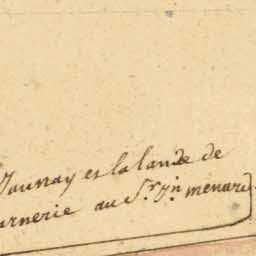 Jaunay et la lande de
urnerie au Sr. Jn. menard